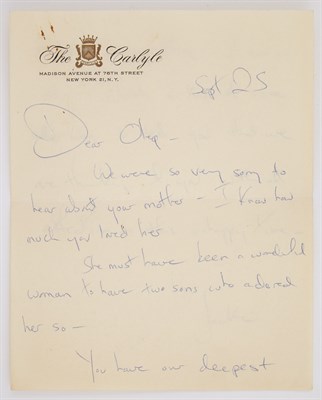 The Carlyle
MADISON AVENUE AT 76TH STREET
NEW YORK 21, N.Y.
Sept 25
Dear Chep –
We were so very sorry to
hear about your mother – I know how
much you loved her
She must have been a wonderful
woman to have two sons who adored
her so –
You have our deepest